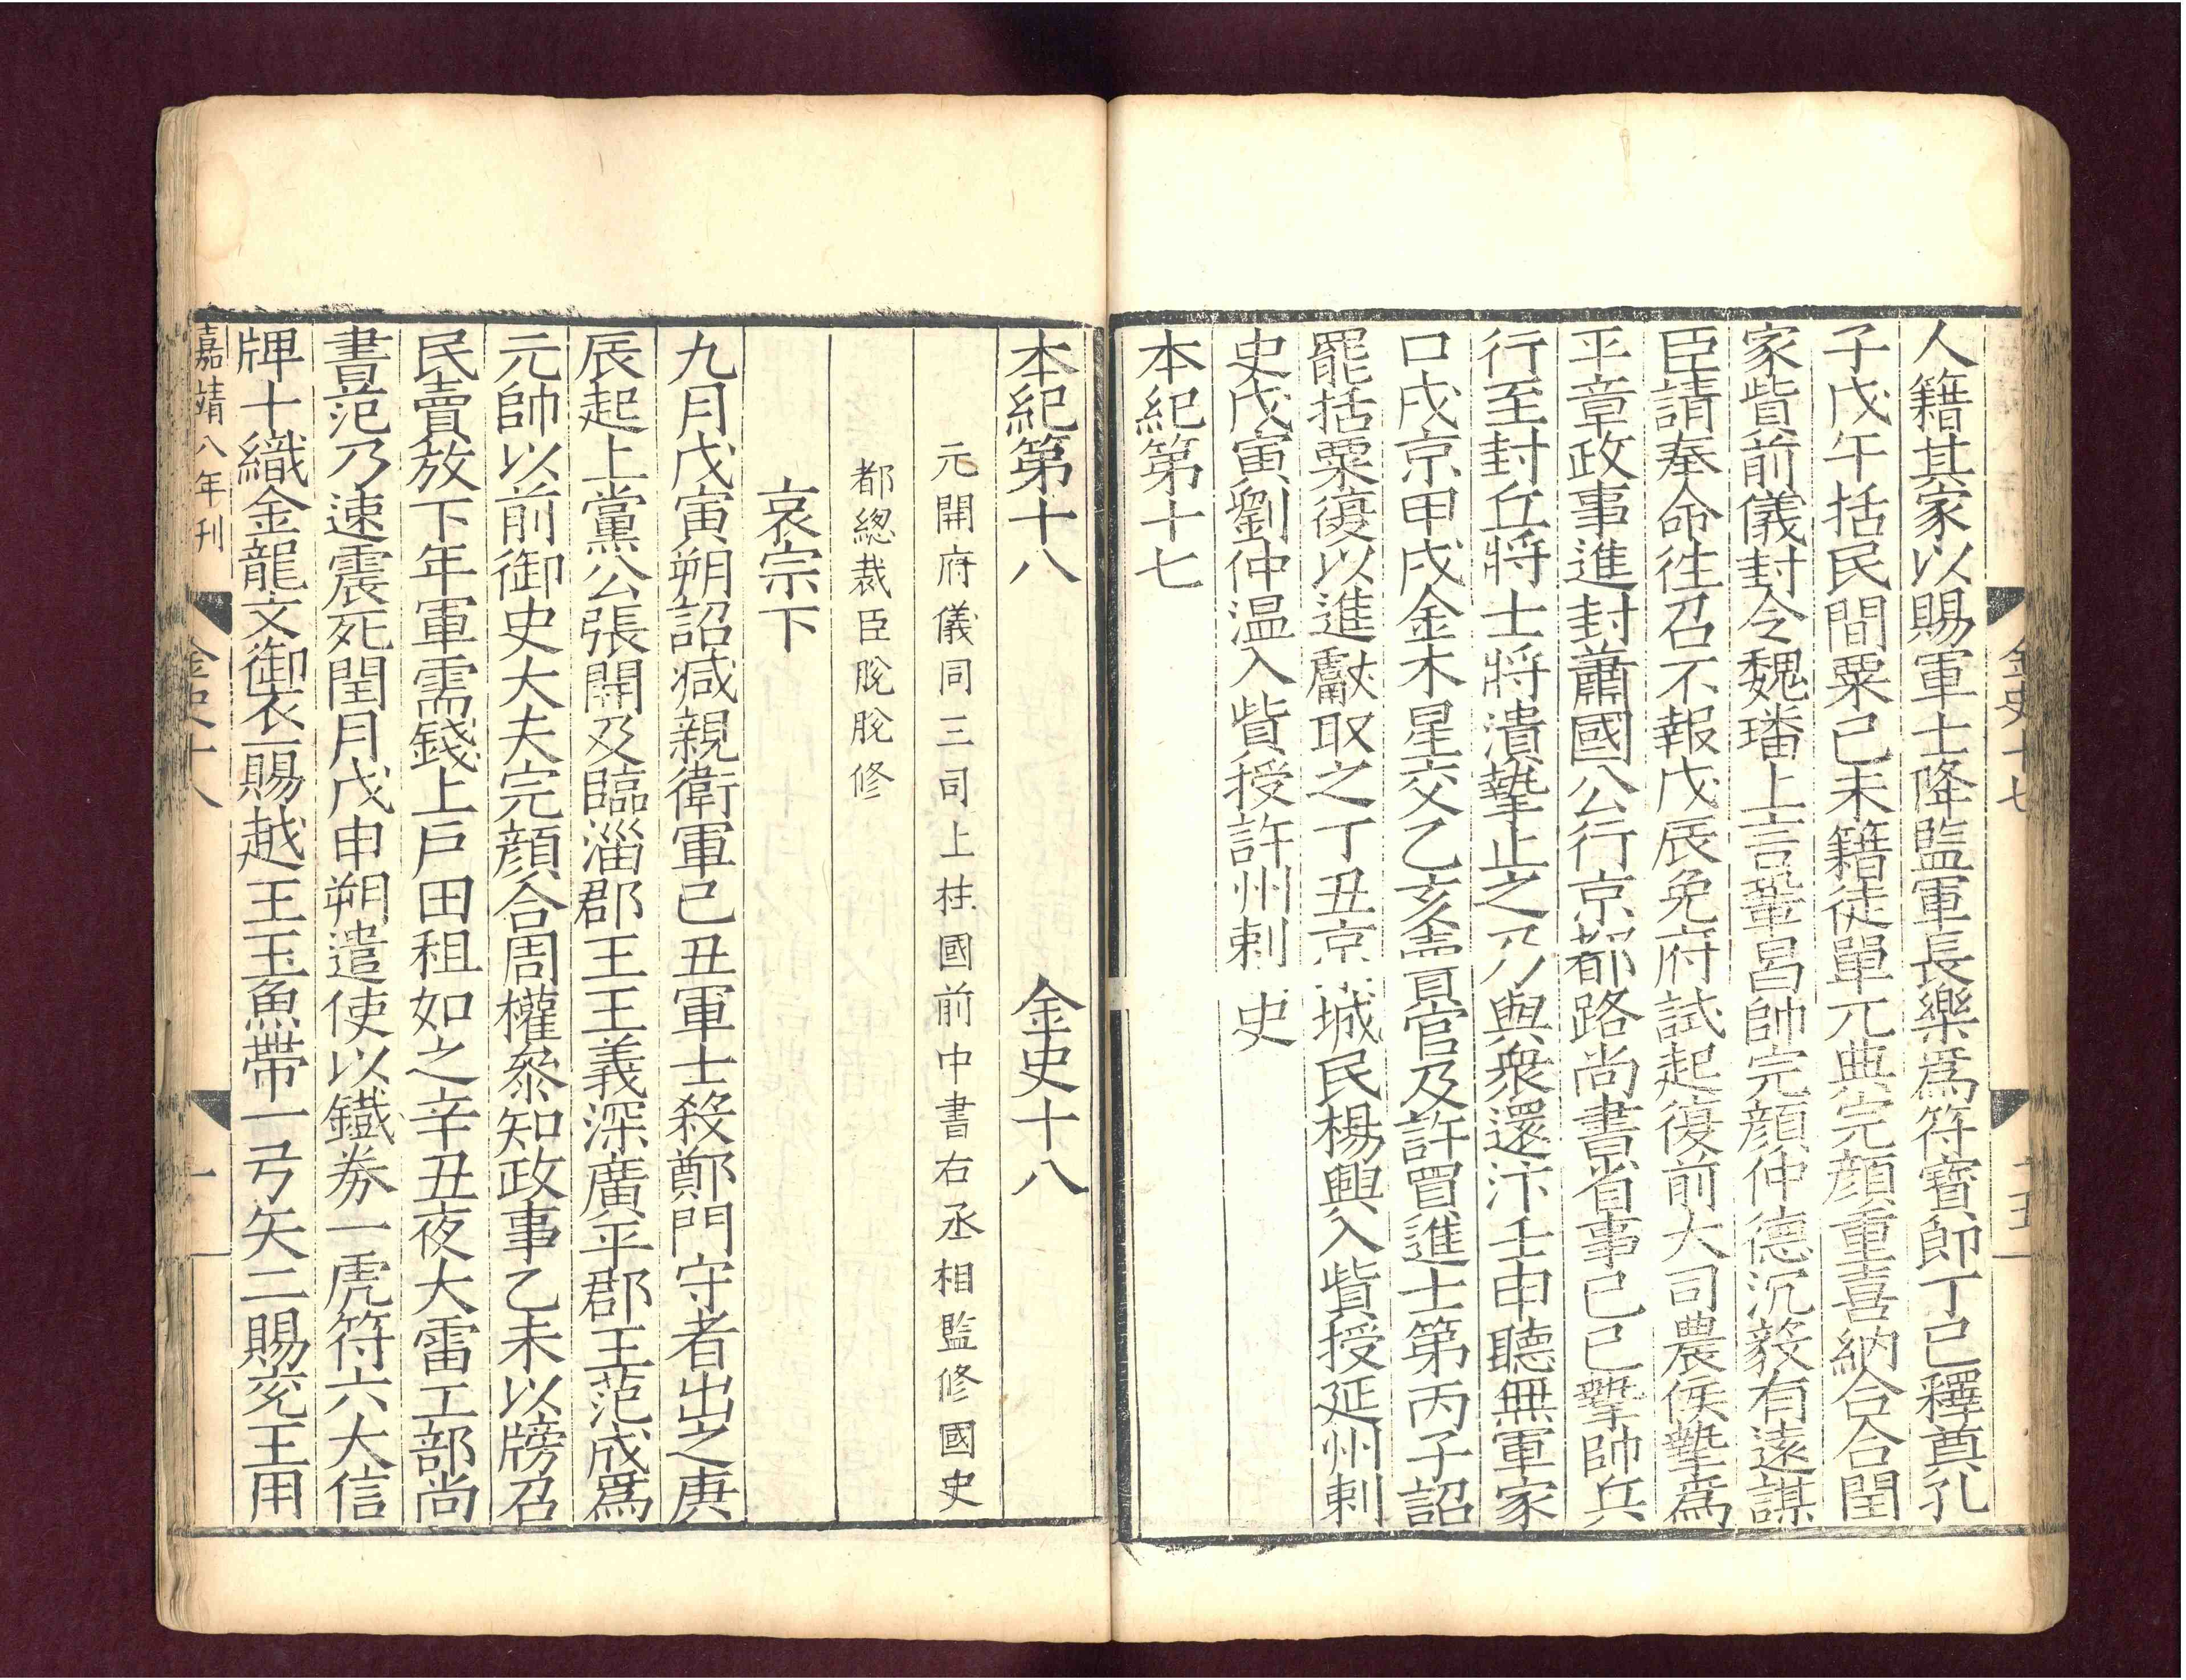 人籍其家以賜軍士降監軍長樂爲符寶郎丁巳釋奠孔
子戊午括民間粟己未籍徒單兀典完顏重喜納合合閏
家貲前儀封令魏璠上言鞏昌帥完顏仲德沉毅有遠謀
臣請奉命徃召不報戊辰免府試起復前大司農侯摯爲
平章政事進封蕭國公行京都路尚書省事己巳摯帥兵
行至封丘將士將潰摯止之乃與衆還汴壬申聽無軍家
口戍京甲戌金木星交乙亥賣官及許買進士第丙子詔
罷括粟復以進獻取之丁丑京城民楊興入貲授延州刺
史戊寅劉仲温入貲授許州刺史
本紀第十七
金史十七
十五
本紀第十八 金史十八
元開府儀同三司上柱國前中書右丞相監修國史
都緫裁臣脫脫修
哀宗下
九月戊寅朔詔減親衛軍己丑軍士殺鄭門守者出之庚
辰起上黨公張開及臨淄郡王王義深廣平郡王范成爲
元帥以前御史大夫完顏合周權叅知政事乙未以牓召
民賣放下年軍需錢上戶田租如之辛丑夜大雷工部尚
書范乃速震死閏月戊申朔遣使以鐵券一虎符六大信
牌十織金龍文御衣一賜越王玉魚帶一弓矢二賜兖王用
嘉靖八年刊
金史十八
一